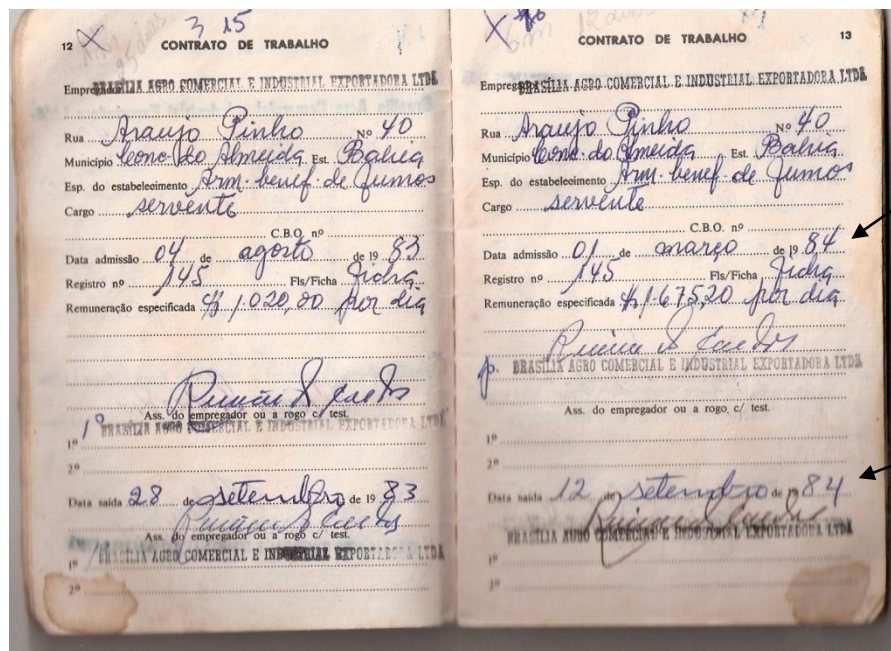 3 15
12 X
CONTRATO DE TRABALHO
Empregador BRASÍLIA AGRO COMERCIAL E INDUSTRIAL EXPORTADORA LTDA
Rua Araujo Pinho Nº 40
Município Conc. do Almeida Est. Bahia
Esp. do estabelecimento Arm. benef. de fumos
Cargo servente
C.B.O. nº
Data admissão 04 de agosto de 19 83
Registro nº 145 Fls/Ficha ficha
Remuneração especificada 1.020,00 por dia
Ass. do empregador ou a rogo c/ test.
1º BRASÍLIA AGRO COMERCIAL E INDUSTRIAL EXPORTADORA LTDA
2º
Data saída 28 de setembro de 19 83
Ass. do empregador ou a rogo c/ test.
1º BRASÍLIA AGRO COMERCIAL E INDUSTRIAL EXPORTADORA LTDA
2º
X
6m 12 dias
CONTRATO DE TRABALHO 13
Empregador BRASÍLIA AGRO COMERCIAL E INDUSTRIAL EXPORTADORA LTDA
Rua Araujo Pinho Nº 40
Município Conc. do Almeida Est. Bahia
Esp. do estabelecimento Arm. benef. de fumos
Cargo servente
C.B.O. nº
Data admissão 01 de março de 19 84
Registro nº 145 Fls/Ficha ficha
Remuneração especificada 1.675,20 por dia
p. BRASÍLIA AGRO COMERCIAL E INDUSTRIAL EXPORTADORA LTDA
Ass. do empregador ou a rogo c/ test.
1º
2º
Data saída 12 de setembro de 19 84
BRASÍLIA AGRO COMERCIAL E INDUSTRIAL EXPORTADORA LTDA
1º
2º